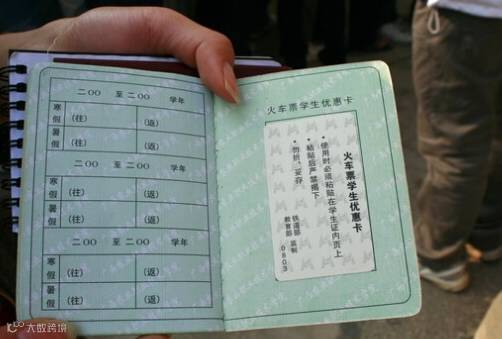 二〇〇 至 二〇〇 学年
寒假 (往) (返)
暑假 (往) (返)
二〇〇 至 二〇〇 学年
寒假 (往) (返)
暑假 (往) (返)
二〇〇 至 二〇〇 学年
寒假 (往) (返)
暑假 (往) (返)
火车票学生优惠卡
火车票学生优惠卡
·使用时必须粘贴在学生证内页上
·粘贴后严禁揭下
·勿折、妥存
铁道部
教育部 监制
0803
大数跨境